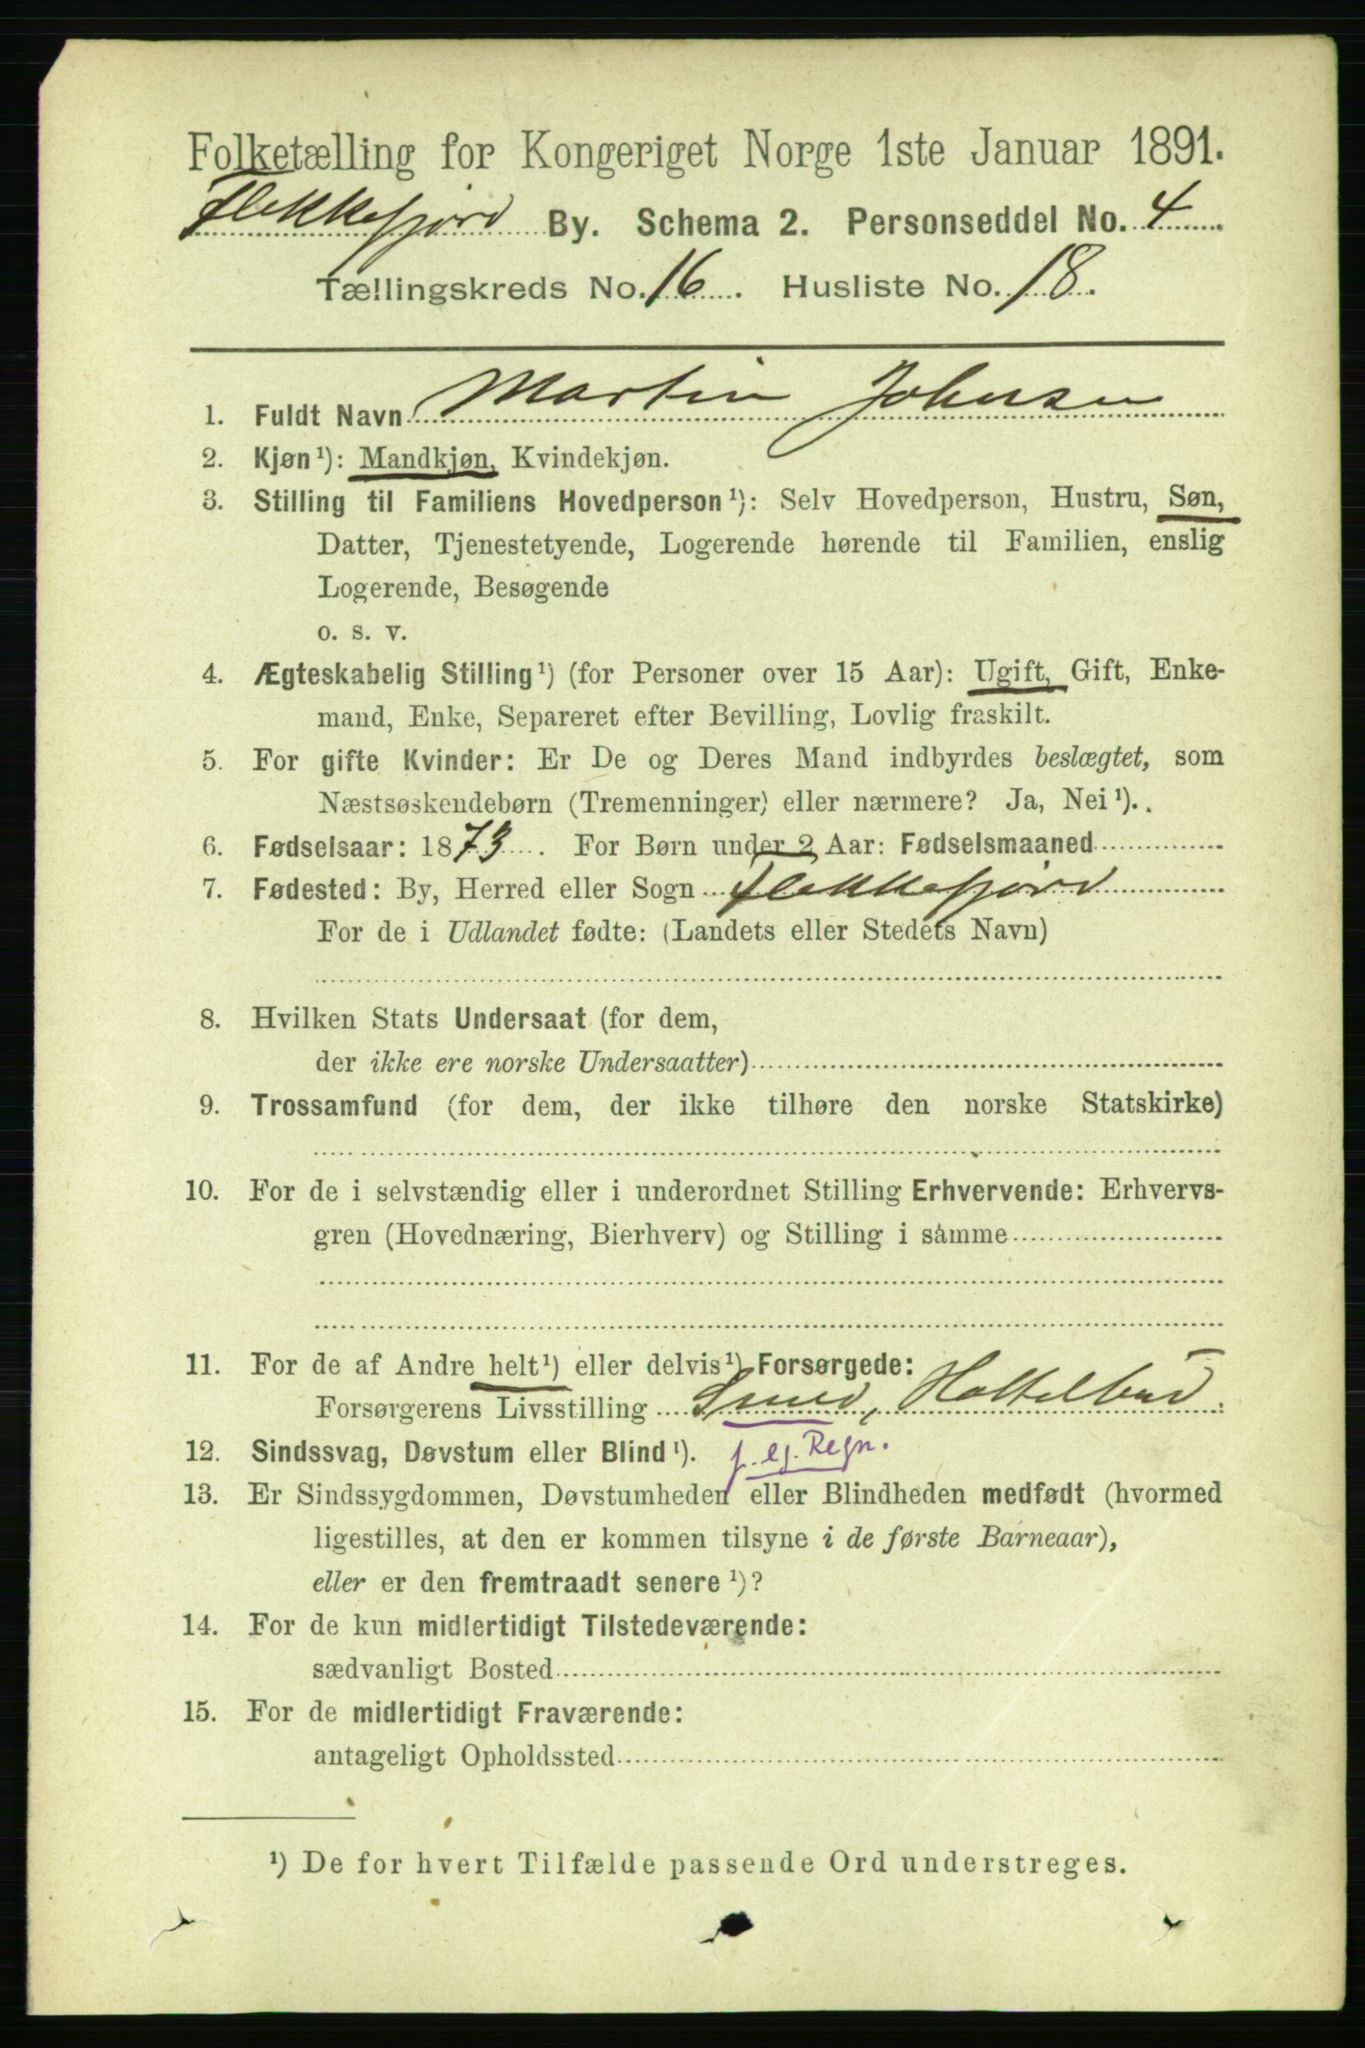 Folketælling for Kongeriget Norge 1ste Januar 1891.
Flekkefjord By. Schema 2. Personseddel No. 4
Tællingskreds No. 16. Husliste No. 18.
1. Fuldt Navn Martin Johnsen
2. Kjøn¹): Mandkjøn, Kvindekjøn.
3. Stilling til Familiens Hovedperson¹): Selv Hovedperson, Hustru, Søn,
Datter, Tjenestetyende, Logerende hørende til Familien, enslig
Logerende, Besøgende
o. s. v.
4. Ægteskabelig Stilling¹) (for Personer over 15 Aar): Ugift, Gift, Enke-
mand, Enke, Separeret efter Bevilling, Lovlig fraskilt.
5. For gifte Kvinder: Er De og Deres Mand indbyrdes beslægtet, som
Næstsøskendebørn (Tremenninger) eller nærmere? Ja, Nei¹)..
6. Fødselsaar: 1873. For Børn under 2 Aar: Fødselsmaaned
7. Fødested: By, Herred eller Sogn Flekkefjord
For de i Udlandet fødte: (Landets eller Stedets Navn)
8. Hvilken Stats Undersaat (for dem,
der ikke ere norske Undersaatter)
9. Trossamfund (for dem, der ikke tilhøre den norske Statskirke)
10. For de i selvstændig eller i underordnet Stilling Erhvervende: Erhvervs-
gren (Hovednæring, Bierhverv) og Stilling i samme
11. For de af Andre helt¹) eller delvis¹) Forsørgede:
Forsørgerens Livsstilling Smed,
12. Sindssvag, Døvstum eller Blind¹). f. eg. Regn.
13. Er Sindssygdommen, Døvstumheden eller Blindheden medfødt (hvormed
ligestilles, at den er kommen tilsyne i de første Barneaar),
eller er den fremtraadt senere¹)?
14. For de kun midlertidigt Tilstedeværende:
sædvanligt Bosted
15. For de midlertidigt Fraværende:
antageligt Opholdssted
¹) De for hvert Tilfælde passende Ord understreges.